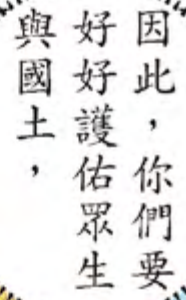 因此，你們要
好好護佑眾生
與國土，